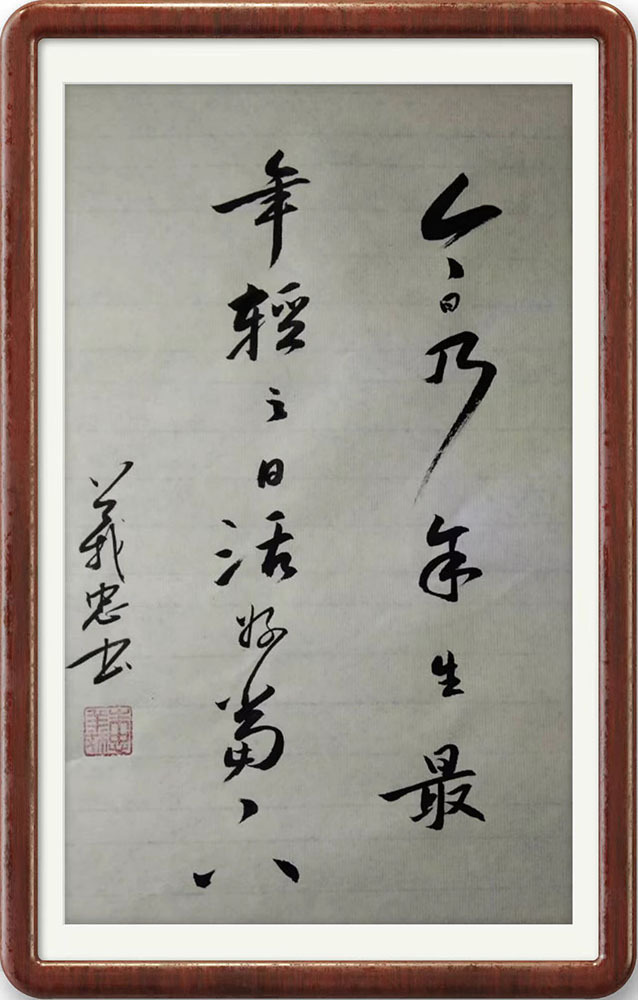 今日乃余生最
年輕之日活好當下
義忠書